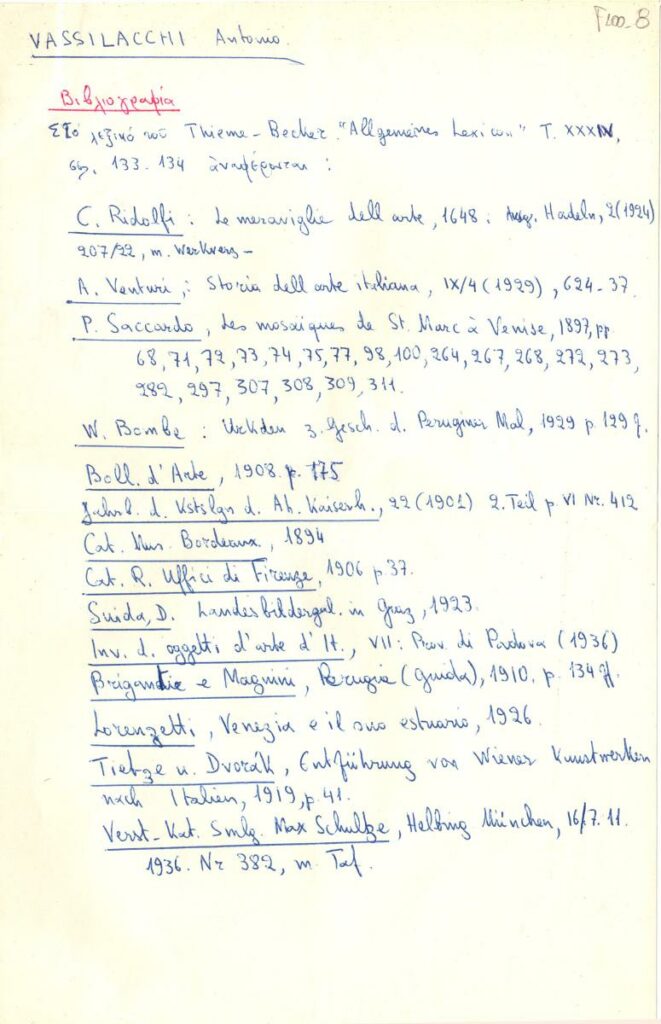 F100-8
VASSILACCHI Antonio.
Βιβλιογραφία
Στό λεξικό τοῦ Thieme-Becker "Allgemeines Lexicon" T. XXXIV,
σσ. 133-134 ἀναφέρωνται :
C. Ridolfi : Le meraviglie dell arte, 1648 : Ausg. Hadeln, 2(1924)
207/22, m. Werkverz-
A. Venturi, : Storia dell arte italiana, IX/4 (1929), 624-37.
P. Saccardo, Les mosaïques de St. Marc à Venise, 1897, pp.
68, 71, 72, 73, 74, 75, 77, 98, 100, 264, 267, 268, 272, 273,
282, 297, 307, 308, 309, 311.
W. Bombe : Urkden z. Gesch. d. Peruginer Mal, 1929 p. 129 f.
Boll. d'Arte, 1908. p. 175
Jahrb. d. Kstslgn d. Ah. Kaiserh., 22 (1901) 2. Teil p. VI Nr. 412
Cat. Mus. Bordeaux, 1894
Cat. R. Uffici di Firenze, 1906 p 37.
Suida, D. Landesbildergal. in Graz, 1923.
Inv. d. oggetti d'arte d'It., VII : Prov. di Padova (1936)
Brigantie e Magnini, Perugia (Guida), 1910, p. 134 ff.
Lorenzetti, Venezia e il suo estuario, 1926.
Tietze u. Dvorák, Entführung von Wiener Kunstwerken
nach Italien, 1919, p. 41.
Verst-Kat. Smlg. Max Schultze, Helbing München, 16/7. 11.
1936. Nr 382, m. Taf.